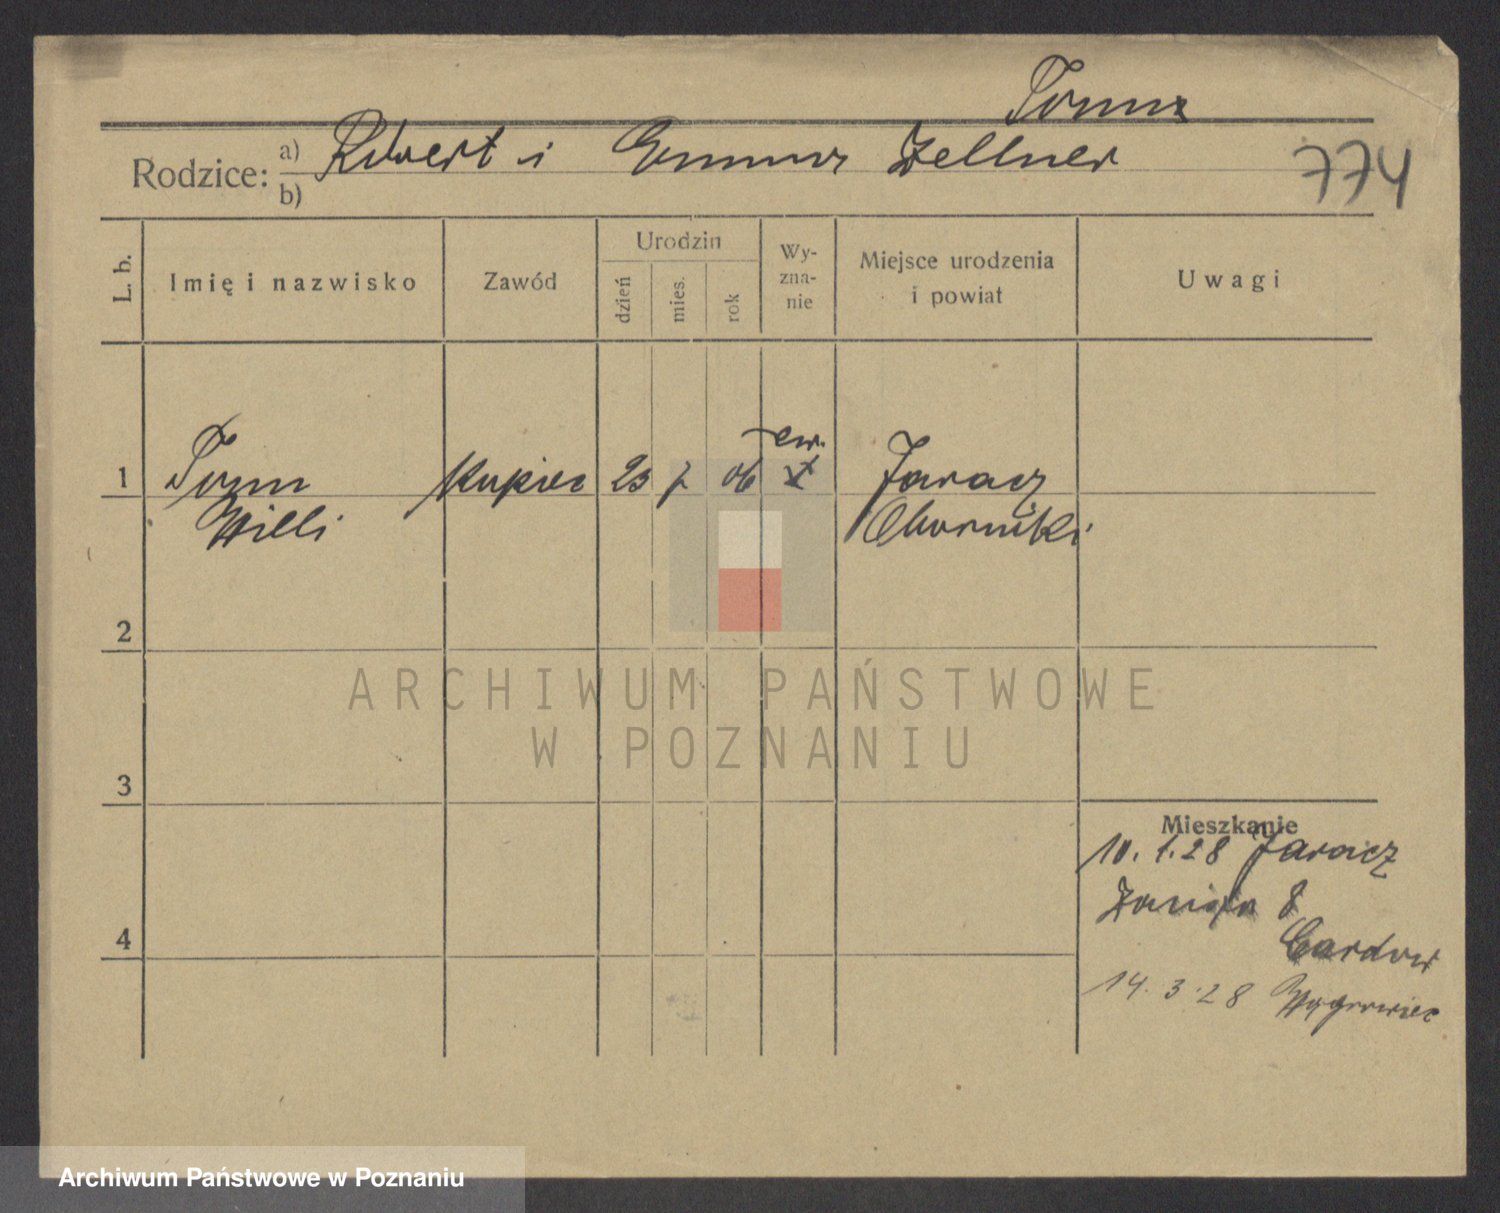 Tonn
Rodzice: a) Robert i Emma Zellner
b)
774
L. b.
Imię i nazwisko
Zawód
Urodzin
dzień
mies.
rok
Wy-
zna-
nie
Miejsce urodzenia
i powiat
Uwagi
ew.
1 Tonn Kupiec 23 7 06 Jaracz
Willi Oborniki
2
ARCHIWUM PAŃSTWOWE
W POZNANIU
3
Mieszkanie
10. 1. 28 Jaracz
8
4
14. 3. 28 Wągrowiec
Archiwum Państwowe w Poznaniu